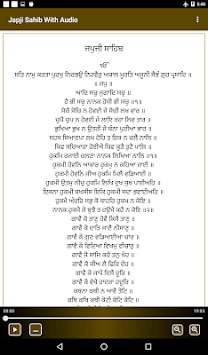 9:46
Japji Sahib With Audio
ਜਪੁਜੀ ਸਾਹਿਬ
ੴ
ਸਤਿ ਨਾਮੁ ਕਰਤਾ ਪੁਰਖੁ ਨਿਰਭਉ ਨਿਰਵੈਰੁ ਅਕਾਲ ਮੂਰਤਿ ਅਜੂਨੀ ਸੈਭੰ ਗੁਰ ਪ੍ਰਸਾਦਿ ॥
॥ ਜਪੁ ॥
ਆਦਿ ਸਚੁ ਜੁਗਾਦਿ ਸਚੁ ॥
ਹੈ ਭੀ ਸਚੁ ਨਾਨਕ ਹੋਸੀ ਭੀ ਸਚੁ ॥੧॥
ਸੋਚੈ ਸੋਚਿ ਨ ਹੋਵਈ ਜੇ ਸੋਚੀ ਲਖ ਵਾਰ ॥
ਚੁਪੈ ਚੁਪ ਨ ਹੋਵਈ ਜੇ ਲਾਇ ਰਹਾ ਲਿਵ ਤਾਰ ॥
ਭੁਖਿਆ ਭੁਖ ਨ ਉਤਰੀ ਜੇ ਬੰਨਾ ਪੁਰੀਆ ਭਾਰ ॥
ਸਹਸ ਸਿਆਣਪਾ ਲਖ ਹੋਹਿ ਤ ਇਕ ਨ ਚਲੈ ਨਾਲਿ ॥
ਕਿਵ ਸਚਿਆਰਾ ਹੋਈਐ ਕਿਵ ਕੂੜੈ ਤੁਟੈ ਪਾਲਿ ॥
ਹੁਕਮਿ ਰਜਾਈ ਚਲਣਾ ਨਾਨਕ ਲਿਖਿਆ ਨਾਲਿ ॥੧॥
ਹੁਕਮੀ ਹੋਵਨਿ ਆਕਾਰ ਹੁਕਮੁ ਨ ਕਹਿਆ ਜਾਈ ॥
ਹੁਕਮੀ ਹੋਵਨਿ ਜੀਅ ਹੁਕਮਿ ਮਿਲੈ ਵਡਿਆਈ ॥
ਹੁਕਮੀ ਉਤਮੁ ਨੀਚੁ ਹੁਕਮਿ ਲਿਖਿ ਦੁਖ ਸੁਖ ਪਾਈਅਹਿ ॥
ਇਕਨਾ ਹੁਕਮੀ ਬਖਸੀਸ ਇਕਿ ਹੁਕਮੀ ਸਦਾ ਭਵਾਈਅਹਿ ॥
ਹੁਕਮੈ ਅੰਦਰਿ ਸਭੁ ਕੋ ਬਾਹਰਿ ਹੁਕਮ ਨ ਕੋਇ ॥
ਨਾਨਕ ਹੁਕਮੈ ਜੇ ਬੁਝੈ ਤ ਹਉਮੈ ਕਹੈ ਨ ਕੋਇ ॥੨॥
ਗਾਵੈ ਕੋ ਤਾਣੁ ਹੋਵੈ ਕਿਸੈ ਤਾਣੁ ॥
ਗਾਵੈ ਕੋ ਦਾਤਿ ਜਾਣੈ ਨੀਸਾਣੁ ॥
ਗਾਵੈ ਕੋ ਗੁਣ ਵਡਿਆਈਆ ਚਾਰ ॥
ਗਾਵੈ ਕੋ ਵਿਦਿਆ ਵਿਖਮੁ ਵੀਚਾਰੁ ॥
ਗਾਵੈ ਕੋ ਸਾਜਿ ਕਰੇ ਤਨੁ ਖੇਹ ॥
ਗਾਵੈ ਕੋ ਜੀਅ ਲੈ ਫਿਰਿ ਦੇਹ ॥
ਗਾਵੈ ਕੋ ਜਾਪੈ ਦਿਸੈ ਦੂਰਿ ॥
ਗਾਵੈ ਕੋ ਵੇਖੈ ਹਾਦਰਾ ਹਦੂਰਿ ॥
ਕਥਨਾ ਕਥੀ ਨ ਆਵੈ ਤੋਟਿ ॥
ਕਥਿ ਕਥਿ ਕਥੀ ਕੋਟੀ ਕੋਟਿ ਕੋਟਿ ॥